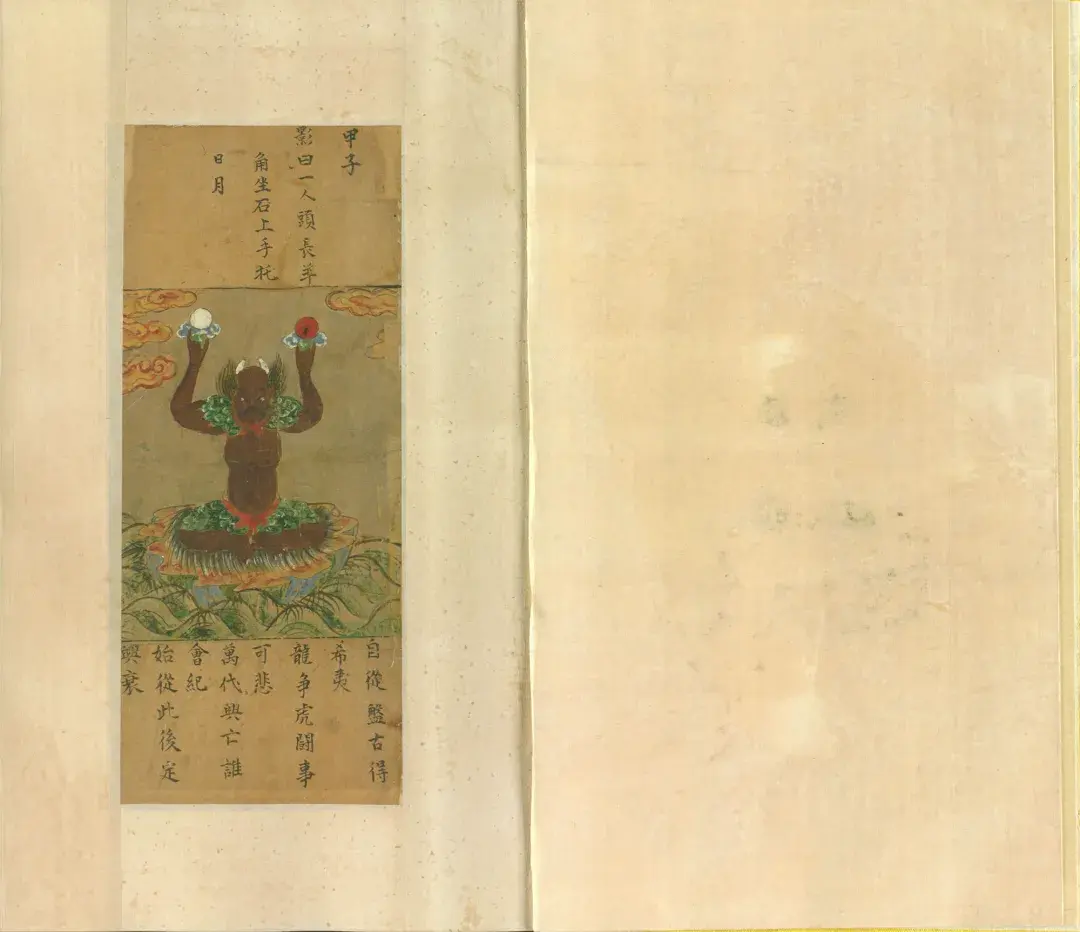 甲子
影曰一人頭長草
角坐石上手托
日月
自從盤古得
希夷
龍爭虎鬪事
可悲
萬代興亡誰
會紀
始從此後定
興衰